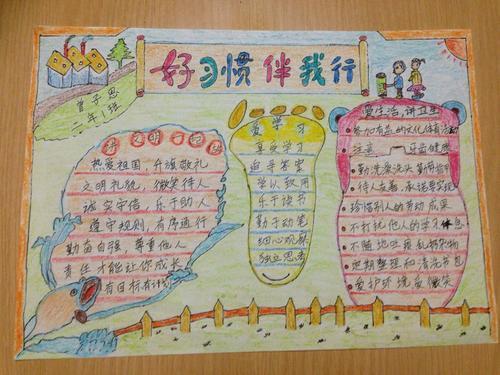 好习惯伴我行
曾子恩
二年1班
好 文明习惯
热爱祖国，升旗敬礼
文明礼貌，微笑待人
诚实守信，乐于助人
遵守规则，有序通行
勤奋自强 尊重他人
责任才能让你成长
有目标有计划
爱学习
享受学习
追寻答案
学以致用
乐于读书
勤于动笔
细心观察
独立思考
爱生活，讲卫生
参加有益的文化体育活
注意 牙齿健康
勤洗澡洗头 勤剪指甲
待人友善，承诺要实现
珍惜别人的劳动成果
不打扰他人的学习休息
不随地吐 乱扔杂物
定期整理和清洗书包
爱护环境